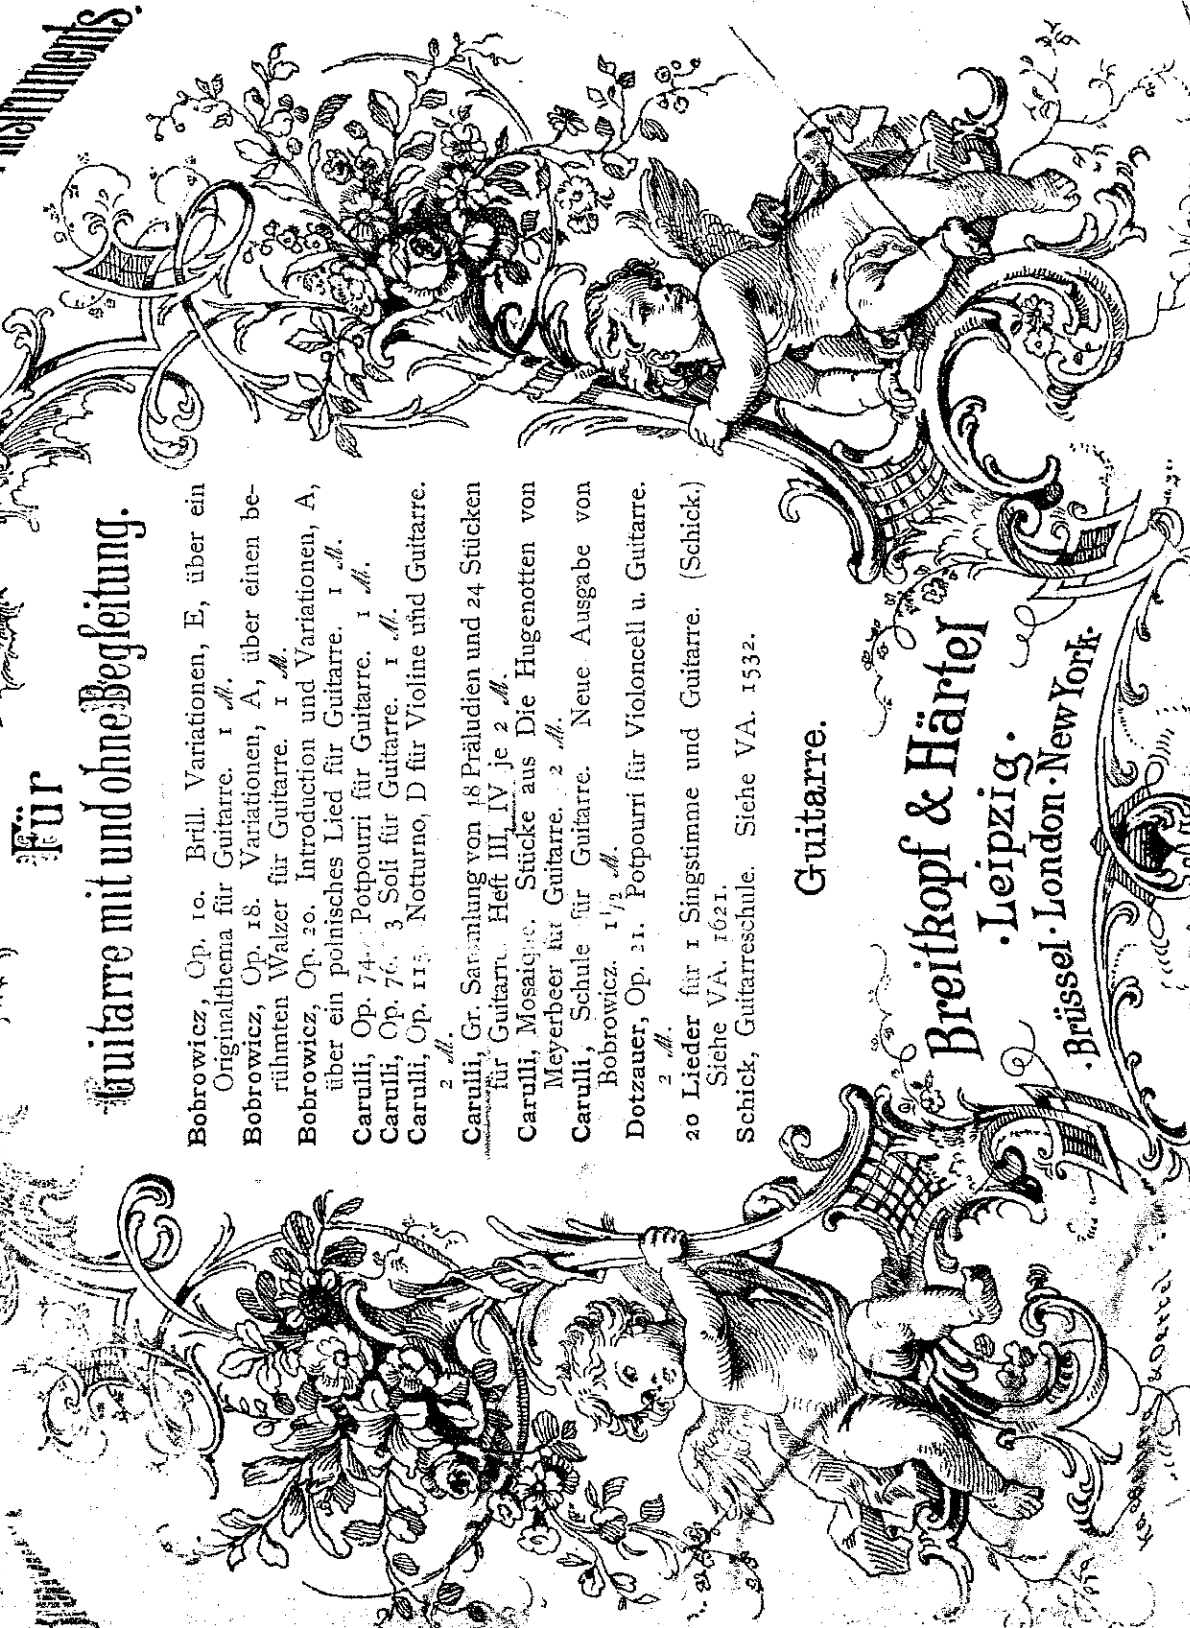 Instruments.
Für
Guitarre mit und ohne Begleitung.
Bobrowicz, Op. 10. Brill. Variationen, E, über ein
Originalthema für Guitarre. 1 M.
Bobrowicz, Op. 18. Variationen, A, über einen be-
rühmten Walzer für Guitarre. 1 M.
Bobrowicz, Op. 20. Introduction und Variationen, A,
über ein polnisches Lied für Guitarre. 1 M.
Carulli, Op. 74. Potpourri für Guitarre. 1 M.
Carulli, Op. 76. 3 Soli für Guitarre. 1 M.
Carulli, Op. 115. Notturno, D für Violine und Guitarre.
2 M.
Carulli, Gr. Sammlung von 18 Präludien und 24 Stücken
für Guitarre. Heft III, IV je 2 M.
Carulli, Mosaique. Stücke aus Die Hugenotten von
Meyerbeer für Guitarre. 2 M.
Carulli, Schule für Guitarre. Neue Ausgabe von
Bobrowicz. 1 1/2 M.
Dotzauer, Op. 21. Potpourri für Violoncell u. Guitarre.
2 M.
20 Lieder für 1 Singstimme und Guitarre. (Schick.)
Siehe VA. 1621.
Schick, Guitarreschule. Siehe VA. 1532.
Guitarre.
Breitkopf & Härtel
·Leipzig·
·Brüssel·London·New York·